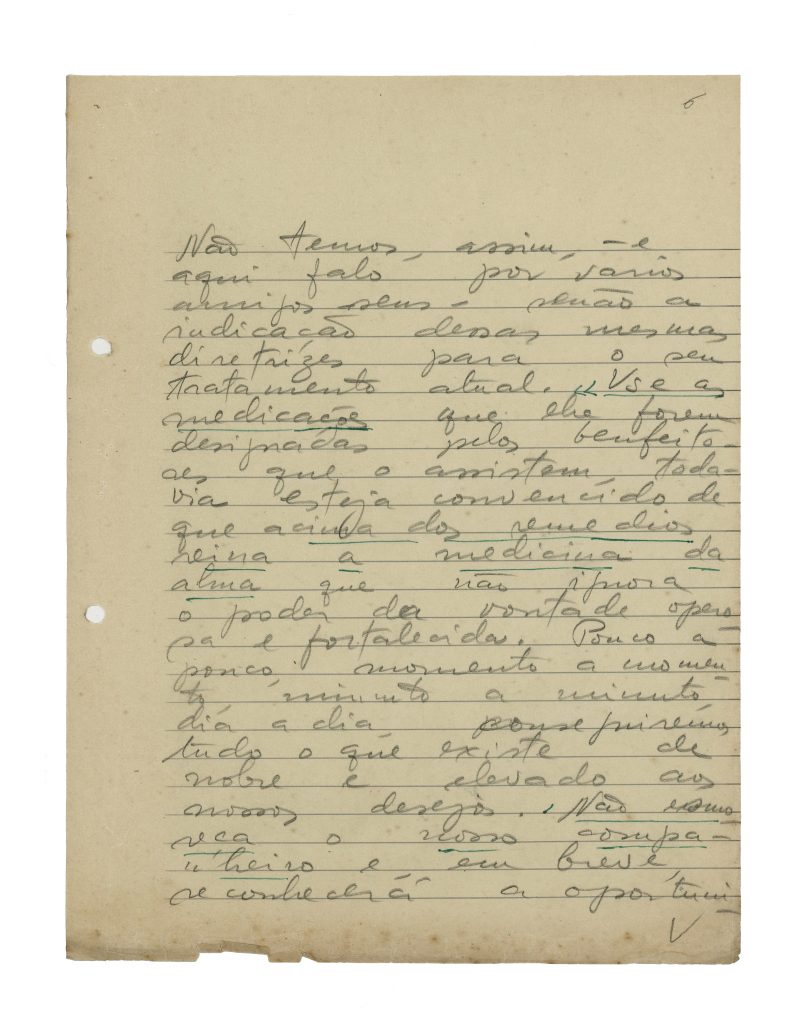 6
Não temos, assim, - e
aqui falo por varios
amigos seus - senão a
indicação dessas mesmas
diretrizes para o seu
tratamento atual. Use as
medicações que lhe forem
designadas pelos benfeito-
res que o assistem, toda-
via esteja convencido de
que acima dos remedios
reina a medicina da
alma que não ignora
o poder da vontade opero
sa e fortalecida. Pouco a
pouco, momento a momen
to, minuto a minuto
dia a dia conseguiremos
tudo o que existe de
nobre e elevado aos
nossos desejos. Não esmo
reça o nosso compa-
nheiro e, em breve,
reconhecerá a oportuni-
V